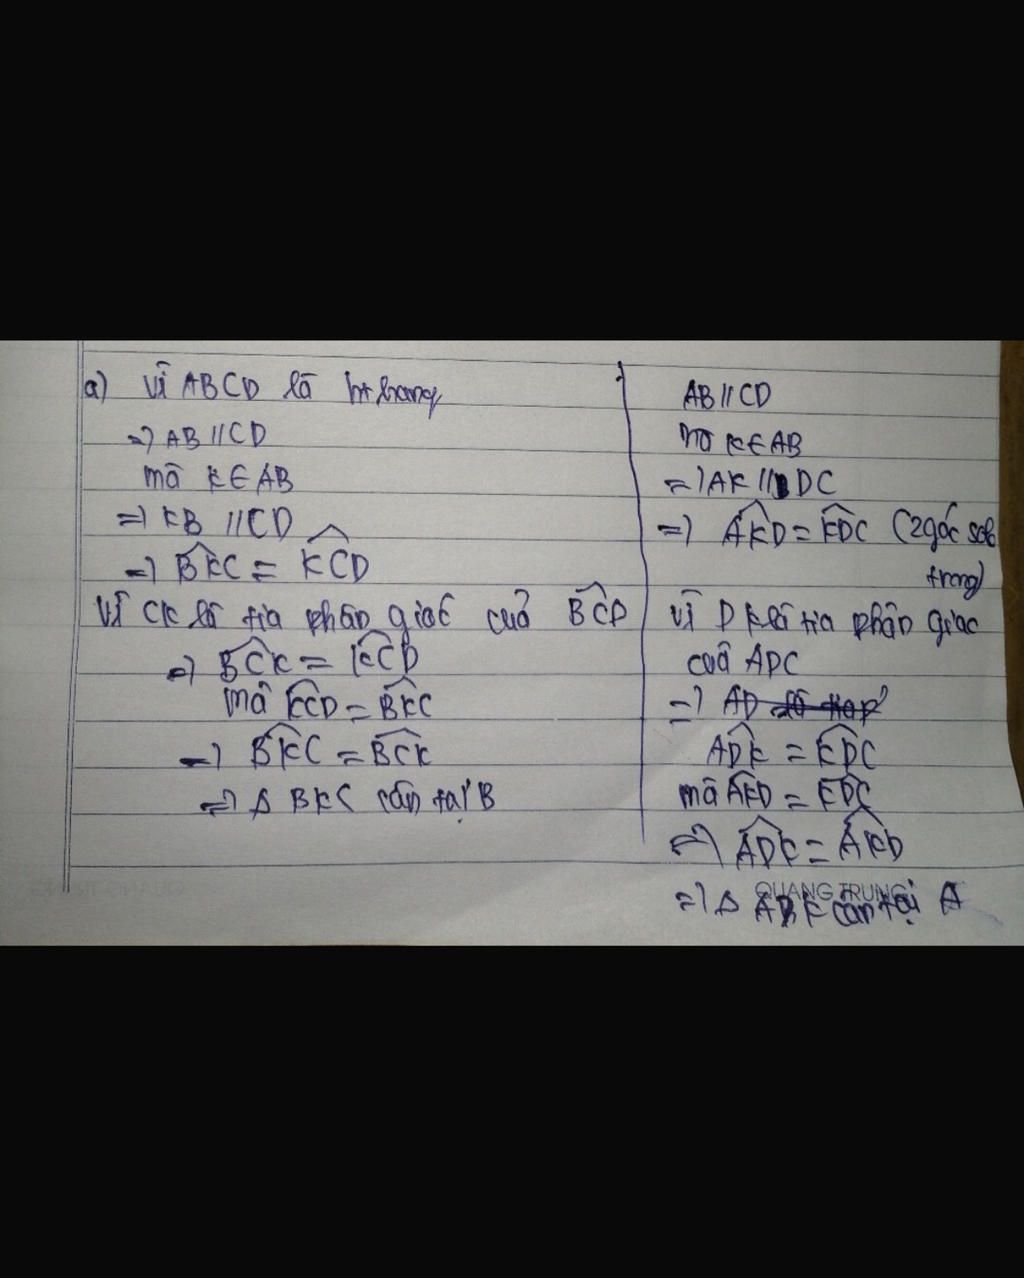 a) Vì ABCD là ht hang
=> AB // CD
mà K ∈ AB
=> KB // CD
=> BKC = KCD
Vì CK là tia phân giác của BCD
=> BCK = KCD
mà KCD = BKC
=> BKC = BCK
=> Δ BKC cân tại B
AB // CD
mà K ∈ AB
=> AK // DC
=> AKD = KDC (2 góc sole
trong)
Vì DK là tia phân giác
của ADC
=> AD là tia p
ADK = KDC
mà AKD = KDC
=> ADK = AKD
QUANG TRUNG
=> Δ ADK cân tại A